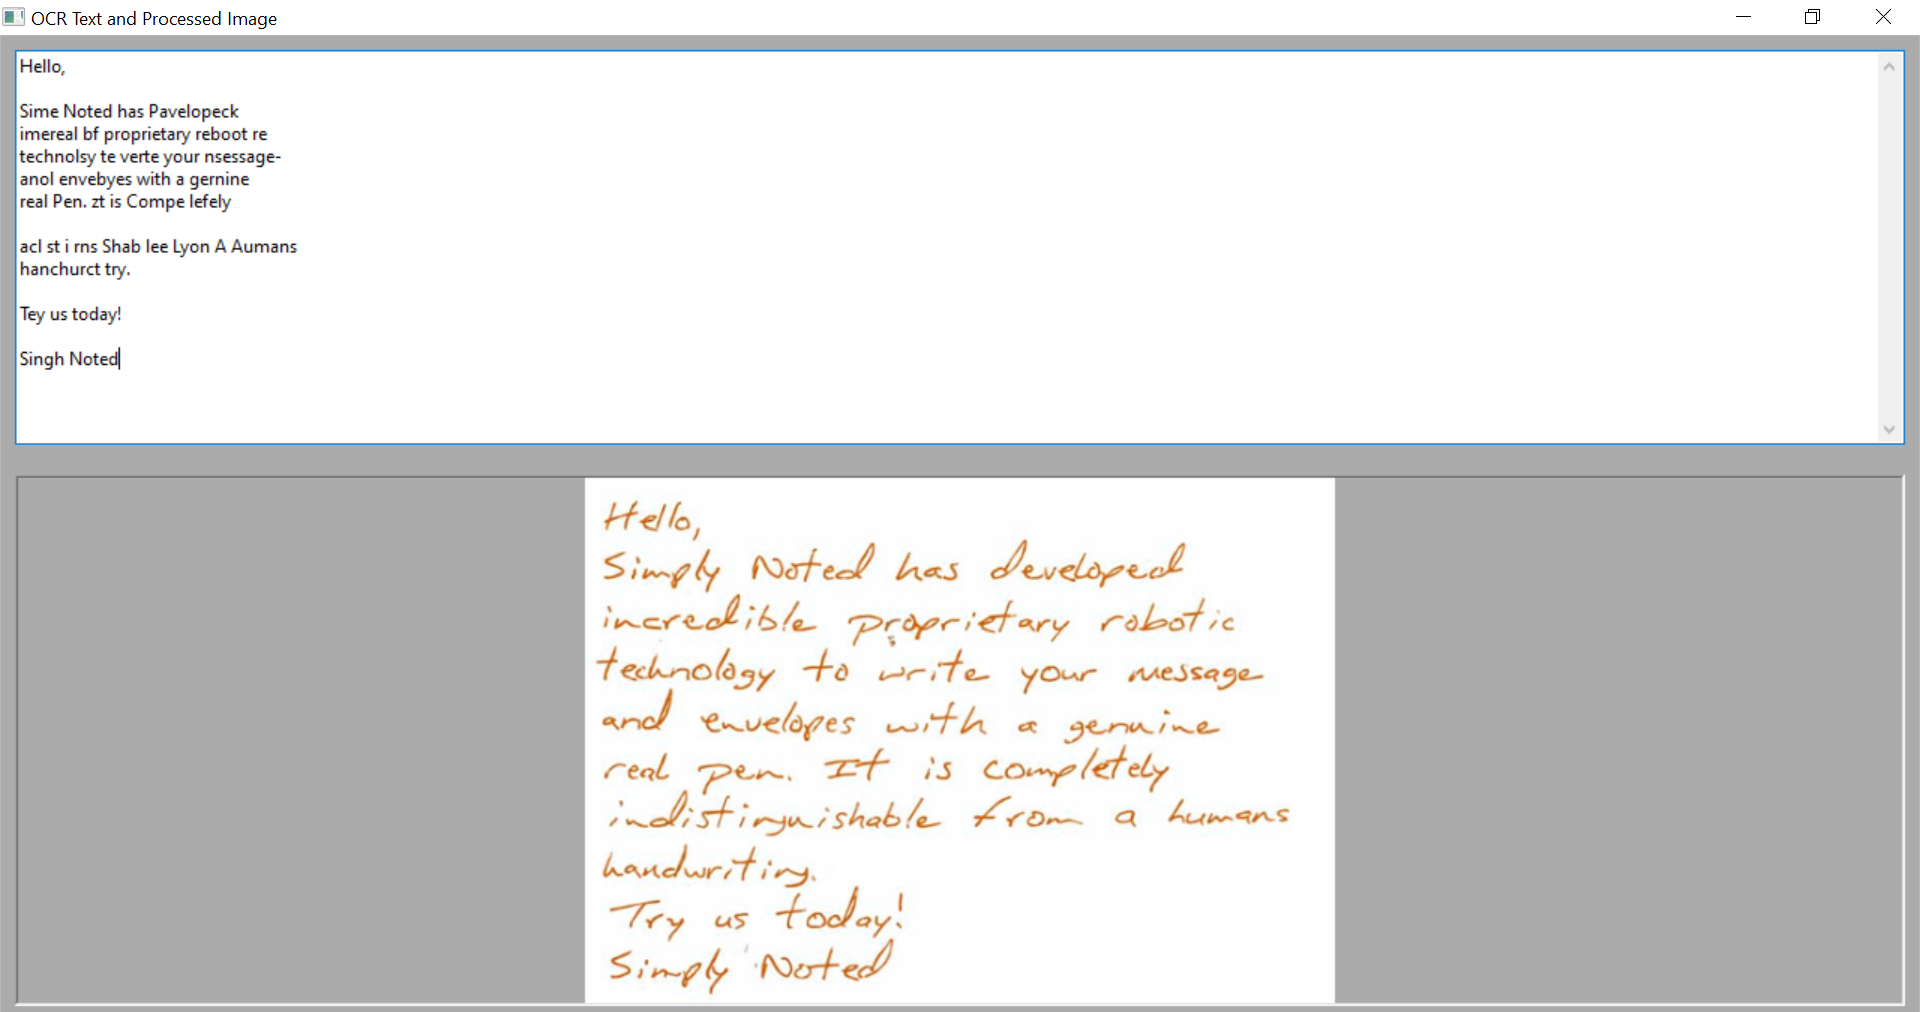 OCR Text and Processed Image
Hello,
Sime Noted has Pavelopeck
imereal bf proprietary reboot re
technolsy te verte your nsessage-
anol envebyes with a gernine
real Pen. zt is Compe lefely
acl st i rns Shab lee Lyon A Aumans
hanchurct try.
Tey us today!
Singh Noted
Hello,
Simply Noted has developed
incredible proprietary robotic
technology to write your message
and envelopes with a genuine
real pen. It is completely
indistinguishable from a humans
handwriting.
Try us today!
Simply Noted